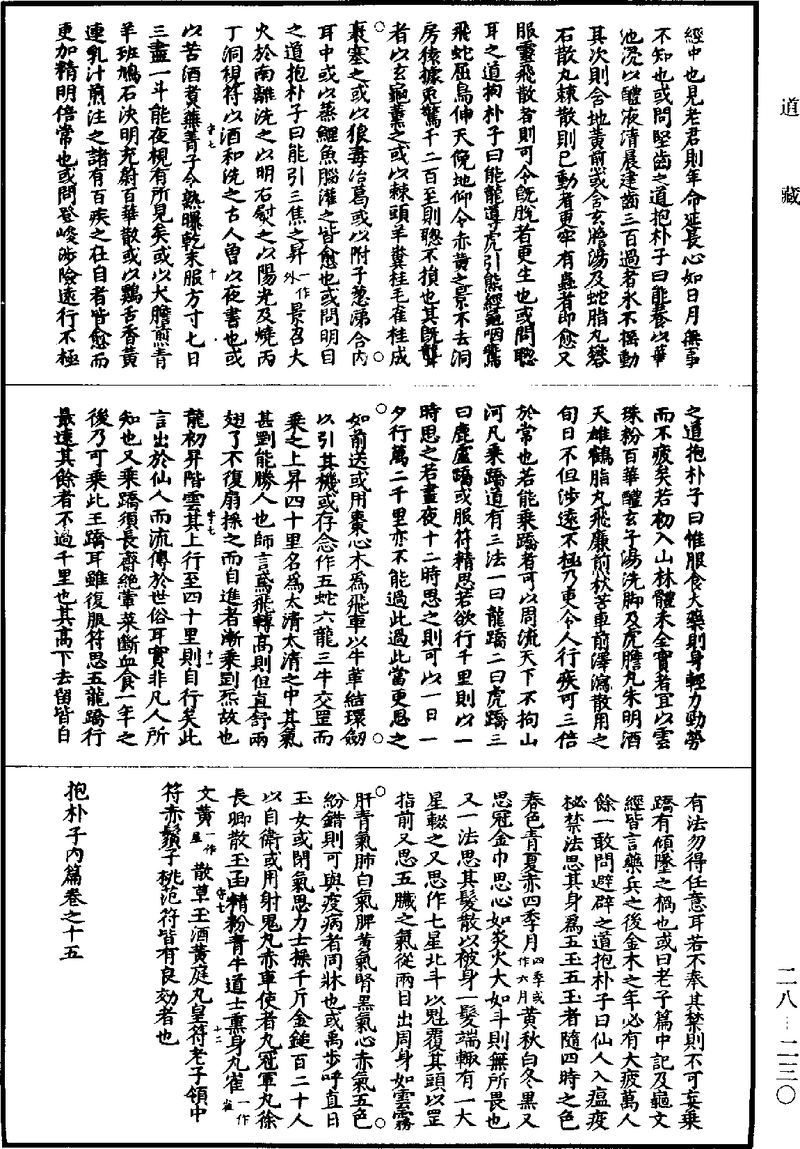 道藏
二八—二三〇
經中也見老君則年命延長心如日月無事
不知也或問堅齒之道抱朴子曰能養以華
池浸以醴液清晨建齒三百過者永不搖動
其次則含地黃煎或含玄膽湯及蛇脂丸礬
石散丸棘散則已動者更牢有蟲者即愈又
服靈飛散者則可令既脫者更生也或問聰
耳之道抱朴子曰能龍導虎引熊經龜咽鷰
飛蛇屈鳥伸天俛地仰令赤黃之景不去洞
房猿據兎驚千二百至則聰不損也其既聾
者以玄龜薰之或以棘頭羊糞桂毛雀桂成
裹塞之或以狼毒冶葛或以附子葱涕合內
耳中或以蒸鯉魚腦灌之皆愈也或問明目
之道抱朴子曰能引三焦之昇一作外景召大
火於南離洗之以明石熨之以陽光及燒丙
丁洞視符以酒和洗之古人曾以夜書也或
以苦酒煮蕪菁子令熟曝乾末服方寸匕日
三盡一斗能夜視有所見矣或以犬膽煎青
羊班鳩石決明充蔚百華散或以鷄舌香黃
連乳汁煎注之諸有百疾之在目者皆愈而
更加精明倍常也或問登峻涉險遠行不極
之道抱朴子曰惟服食大藥則身輕力勁勞
而不疲矣若初入山林體未全實者宜以雲
珠粉百華醴玄子湯洗脚及虎膽丸朱明酒
天雄鶴脂丸飛廉煎秋芒車前澤瀉散用之
旬日不但涉遠不極乃更令人行疾可三倍
於常也若能乘蹻者可以周流天下不拘山
河凡乘蹻道有三法一曰龍蹻二曰虎蹻三
曰鹿盧蹻或服符精思若欲行千里則以一
時思之若晝夜十二時思之則可以一日一
夕行萬二千里亦不能過此過此當更思之
如前送或用棗心木為飛車以牛革結環劔
以引其機或存念作五蛇六龍三牛交罡而
乘之上昇四十里名為太清太清之中其氣
甚㓻能勝人也師言鳶飛轉高則但直舒兩
翅了不復扇搖之而自進者漸乘㓻炁故也
龍初昇階雲其上行至四十里則自行矣此
言出於仙人而流傳於世俗耳實非凡人所
知也又乘蹻須長齋絕葷菜斷血食一年之
後乃可乘此三蹻耳雖復服符思五龍蹻行
最遠其餘者不過千里也其高下去留皆自
有法勿得任意耳若不奉其禁則不可妄乘
蹻有傾墜之禍也或曰老子篇中記及龜文
經皆言藥兵之後金木之年必有大疫萬人
餘一敢問避辟之道抱朴子曰仙人入瘟疫
秘禁法思其身為五玉五玉者隨四時之色
春色青夏赤四季月四季或作六月黃秋白冬黑又
思冠金巾思心如炎火大如斗則無所畏也
又一法思其髮散以被身一髮端輙有一大
星輟之又思作七星北斗以魁覆其頭以罡
指前又思五臟之氣從兩目出周身如雲霧
肝青氣肺白氣脾黃氣腎黑氣心赤氣五色
紛錯則可與疫病者同牀也或禹步呼直日
玉女或閉氣思力士操千斤金鎚百二十人
以自衛或用射鬼丸赤車使者丸冠軍丸徐
長卿散玉函精粉青牛道士熏身丸崔一作雀
文黃一作星散草玉酒黃庭丸皇符老子領中
符赤鬚子桃范符皆有良効者也
抱朴子內篇卷之十五